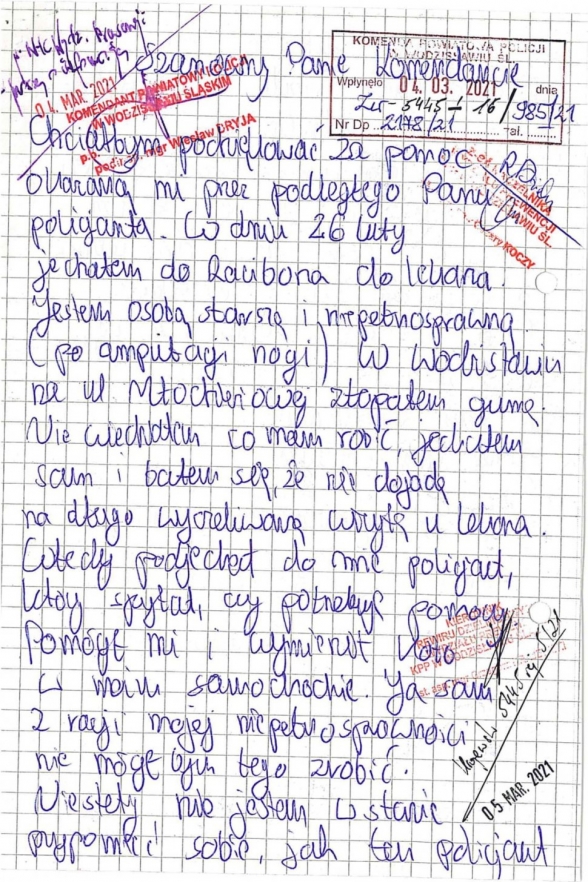 04. MAR. 2021
KOMENDANT POWIATOWY POLICJI
W WODZISŁAWIU ŚLĄSKIM
p.o.
podinsp. mgr Wiesław DRYJA
KOMENDA POWIATOWA POLICJI
W WODZISŁAWIU ŚL.
Wpłynęło 04. 03. 2021 dnia
5445 - 16/985/21
Nr Dp 2178/21 zał.
Szanowny Panie Komendancie
Chciałbym podziękować za pomoc
okazaną mi przez podległego Panu
KOCZY
policjanta. W dniu 26 luty
jechałem do Raciborza do lekarza.
Jestem osobą starszą i niepełnosprawną
(po amputacji nogi) W Wodzisławiu
na ul Młodzieżowej złapałem gumę.
Nie wiedziałem co mam robić, jechałem
sam i bałem się, że nie dojadę
na długo wyczekiwaną wizytę u lekarza.
Wtedy podjechał do mnie policjant,
który spytał, czy potrzebuję pomocy
Pomógł mi i wymienił koło
w moim samochodzie. Ja sam
z racji mojej niepełnosprawności
nie mógł bym tego zrobić.
Niestety nie jestem w stanie
przypomnieć sobie, jak ten policjant
5445 5/21
05 MAR. 2021